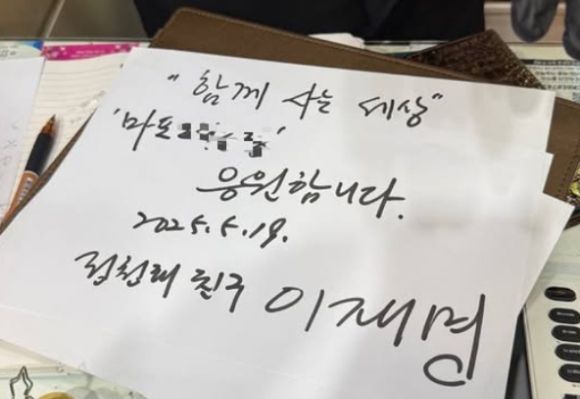 "함께 사는 세상"
'마포'
응원합니다.
2025.5.19.
정청래 친구 이재명